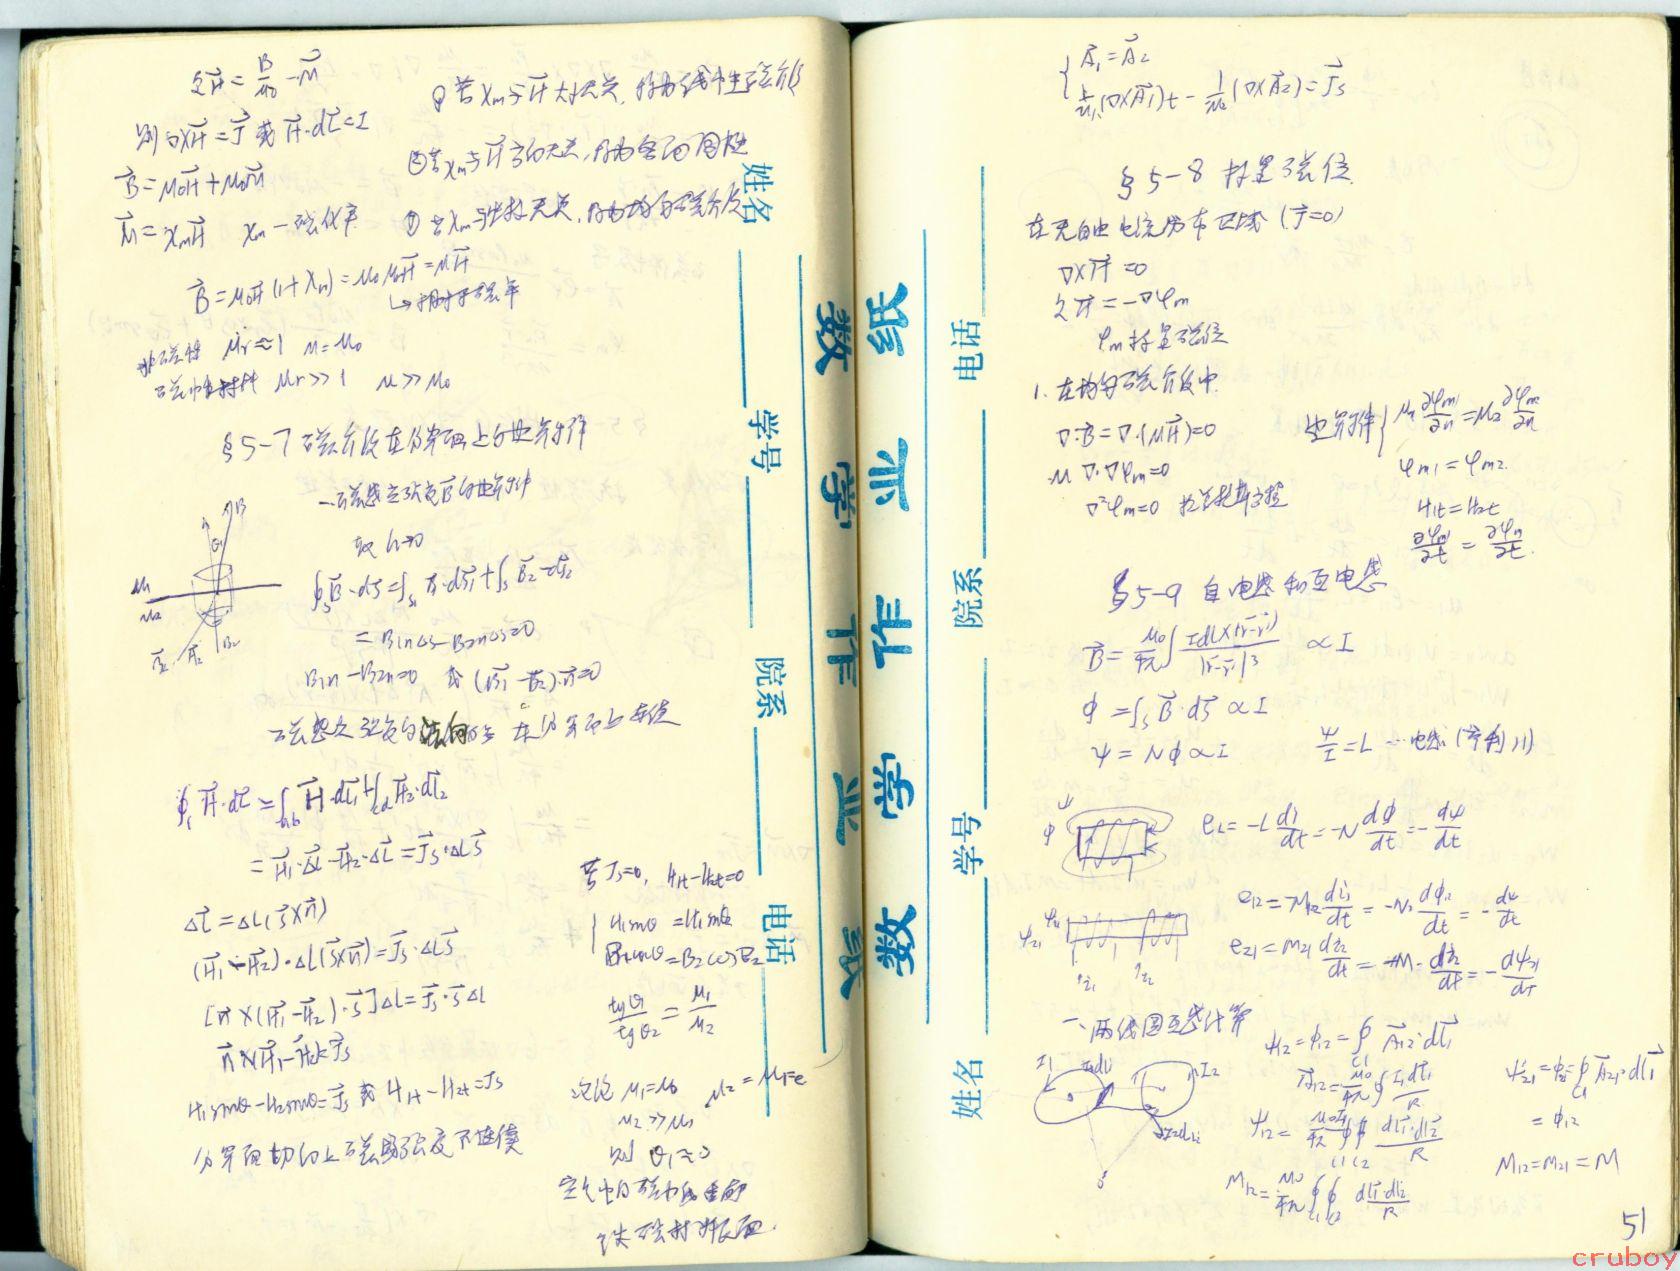 令H⃗ = B⃗/μ₀ − M⃗
则∇×H⃗ = J⃗ 或 H⃗·dl⃗ = I
B⃗ = μ₀H⃗ + μ₀M⃗
M⃗ = χmH⃗ χm — 磁化率
①若χm与H⃗大小无关，称为线性磁介质
②若χm与H⃗方向无关，称为各向同性
③若χm与坐标无关，称为均匀磁介质
B⃗ = μ₀H⃗(1+χm) = μ₀μrH⃗ = μH⃗
↳相对于磁率
非磁性 μr≈1 μ=μ₀
磁性材料 μr>>1 μ>>μ₀
§5-7 磁介质在分界面上的边界条件
一磁感应强度B⃗的边界条件
取h→0
∮s B⃗·dS⃗ = ∫s1 B⃗1·dS⃗1 + ∫s B⃗2·dS⃗2
= B1nΔS − B2nΔS = 0
B1n − B2n = 0 或 (B⃗1 − B⃗2)·n⃗ = 0
磁感应强度的法向 在分界面上连续
μ1
μ2
B2
∮l H⃗·dl⃗ = ∫ab H⃗·dl⃗1 + ∫cd H⃗2·dl⃗2
= H⃗1·Δl⃗ − H⃗2·Δl⃗ = J⃗s·ΔLS⃗
Δl⃗ = ΔL(S⃗×n⃗)
(H⃗1 − H⃗2)·ΔL(S⃗×n⃗) = J⃗s·ΔLS⃗
[n⃗×(H⃗1 − H⃗2)·S⃗]ΔL = J⃗s·S⃗ΔL
n⃗×(H⃗1 − H⃗2) = J⃗s
H1sinθ − H2sinθ = Js 或 H1t − H2t = Js
分界面切向上磁场强度不连续
若Js=0, H1t − H2t = 0
H1sinθ = H2sinθ
B1cosθ = B2cosθ2
tgθ1/tgθ2 = μ1/μ2
讨论 μ1=μ0 μ2=μFe
μ2>>μ1
则 θ1≈0
空气中的磁力线垂直
铁磁材料表面.
姓名
学号
院系
电话
数学作业纸
A⃗1 = A⃗2
1/μ1(∇×A⃗1)t − 1/μ2(∇×A⃗2) = J⃗s
§5-8 标量磁位
在无自由电流分布区域 (J⃗=0)
∇×H⃗ = 0
令H⃗ = −∇φm
φm标量磁位
1. 在均匀磁介质中
∇·B⃗ = ∇·(μH⃗) = 0
μ∇·∇φm = 0
∇²φm = 0 拉普拉斯方程
边界条件 μ1 ∂φm1/∂n = μ2 ∂φm2/∂n
φm1 = φm2.
H1t = H2t
∂φm1/∂t = ∂φm2/∂t.
§5-9 自电感和互电感
B⃗ = μ0/4π ∫ Idl×(r⃗−r⃗')/|r⃗−r⃗'|³ ∝ I
Φ = ∫s B⃗·dS⃗ ∝ I
Ψ = NΦ ∝ I Ψ/I = L … 电感(亨利H)
Ψ
Φ
eL = −L di/dt = −N dΦ/dt = −dΨ/dt
e12 = −M12 di1/dt = −N2 dΦ12/dt = −dΨ/dt
e21 = M21 di2/dt = −M·di2/dt = −dΨ21/dt
一、两线圈互感计算
I1
I2
Ψ12 = Φ12 = ∮c1 A⃗12·dl⃗1
A⃗12 = μ0/4π ∮ I1dl⃗1/R
Ψ12 = μ0I/4π ∮∮c1c2 dl⃗1·dl⃗2/R
M12 = μ0/4π ∮c1∮c2 dl⃗1·dl⃗2/R
Ψ21 = Φ2 = ∮c1 A⃗21·dl⃗1
= Φ12
M12 = M21 = M
电话
院系
学号
姓名
数学作业纸
51
cruboy